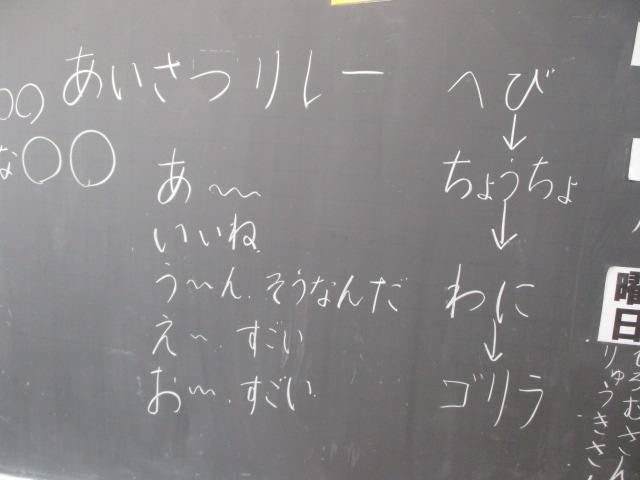 あいさつリレー
〇〇
な〇〇
あ〜
いいね
う〜ん.そうなんだ
え〜.すごい
お〜.すごい
へび
↓
ちょうちょ
↓
わに
↓
ゴリラ
曜日
りゅうきさ